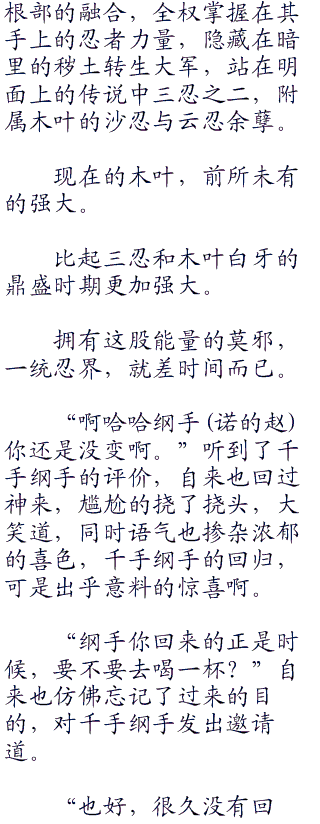 根部的融合，全权掌握在其
手上的忍者力量，隐藏在暗
里的秽土转生大军，站在明
面上的传说中三忍之二，附
属木叶的沙忍与云忍余孽。
现在的木叶，前所未有
的强大。
比起三忍和木叶白牙的
鼎盛时期更加强大。
拥有这股能量的莫邪，
一统忍界，就差时间而已。
“啊哈哈纲手(诺的赵)
你还是没变啊。”听到了千
手纲手的评价，自来也回过
神来，尴尬的挠了挠头，大
笑道，同时语气也掺杂浓郁
的喜色，千手纲手的回归，
可是出乎意料的惊喜啊。
“纲手你回来的正是时
候，要不要去喝一杯？”自
来也仿佛忘记了过来的目
的，对千手纲手发出邀请
道。
“也好，很久没有回